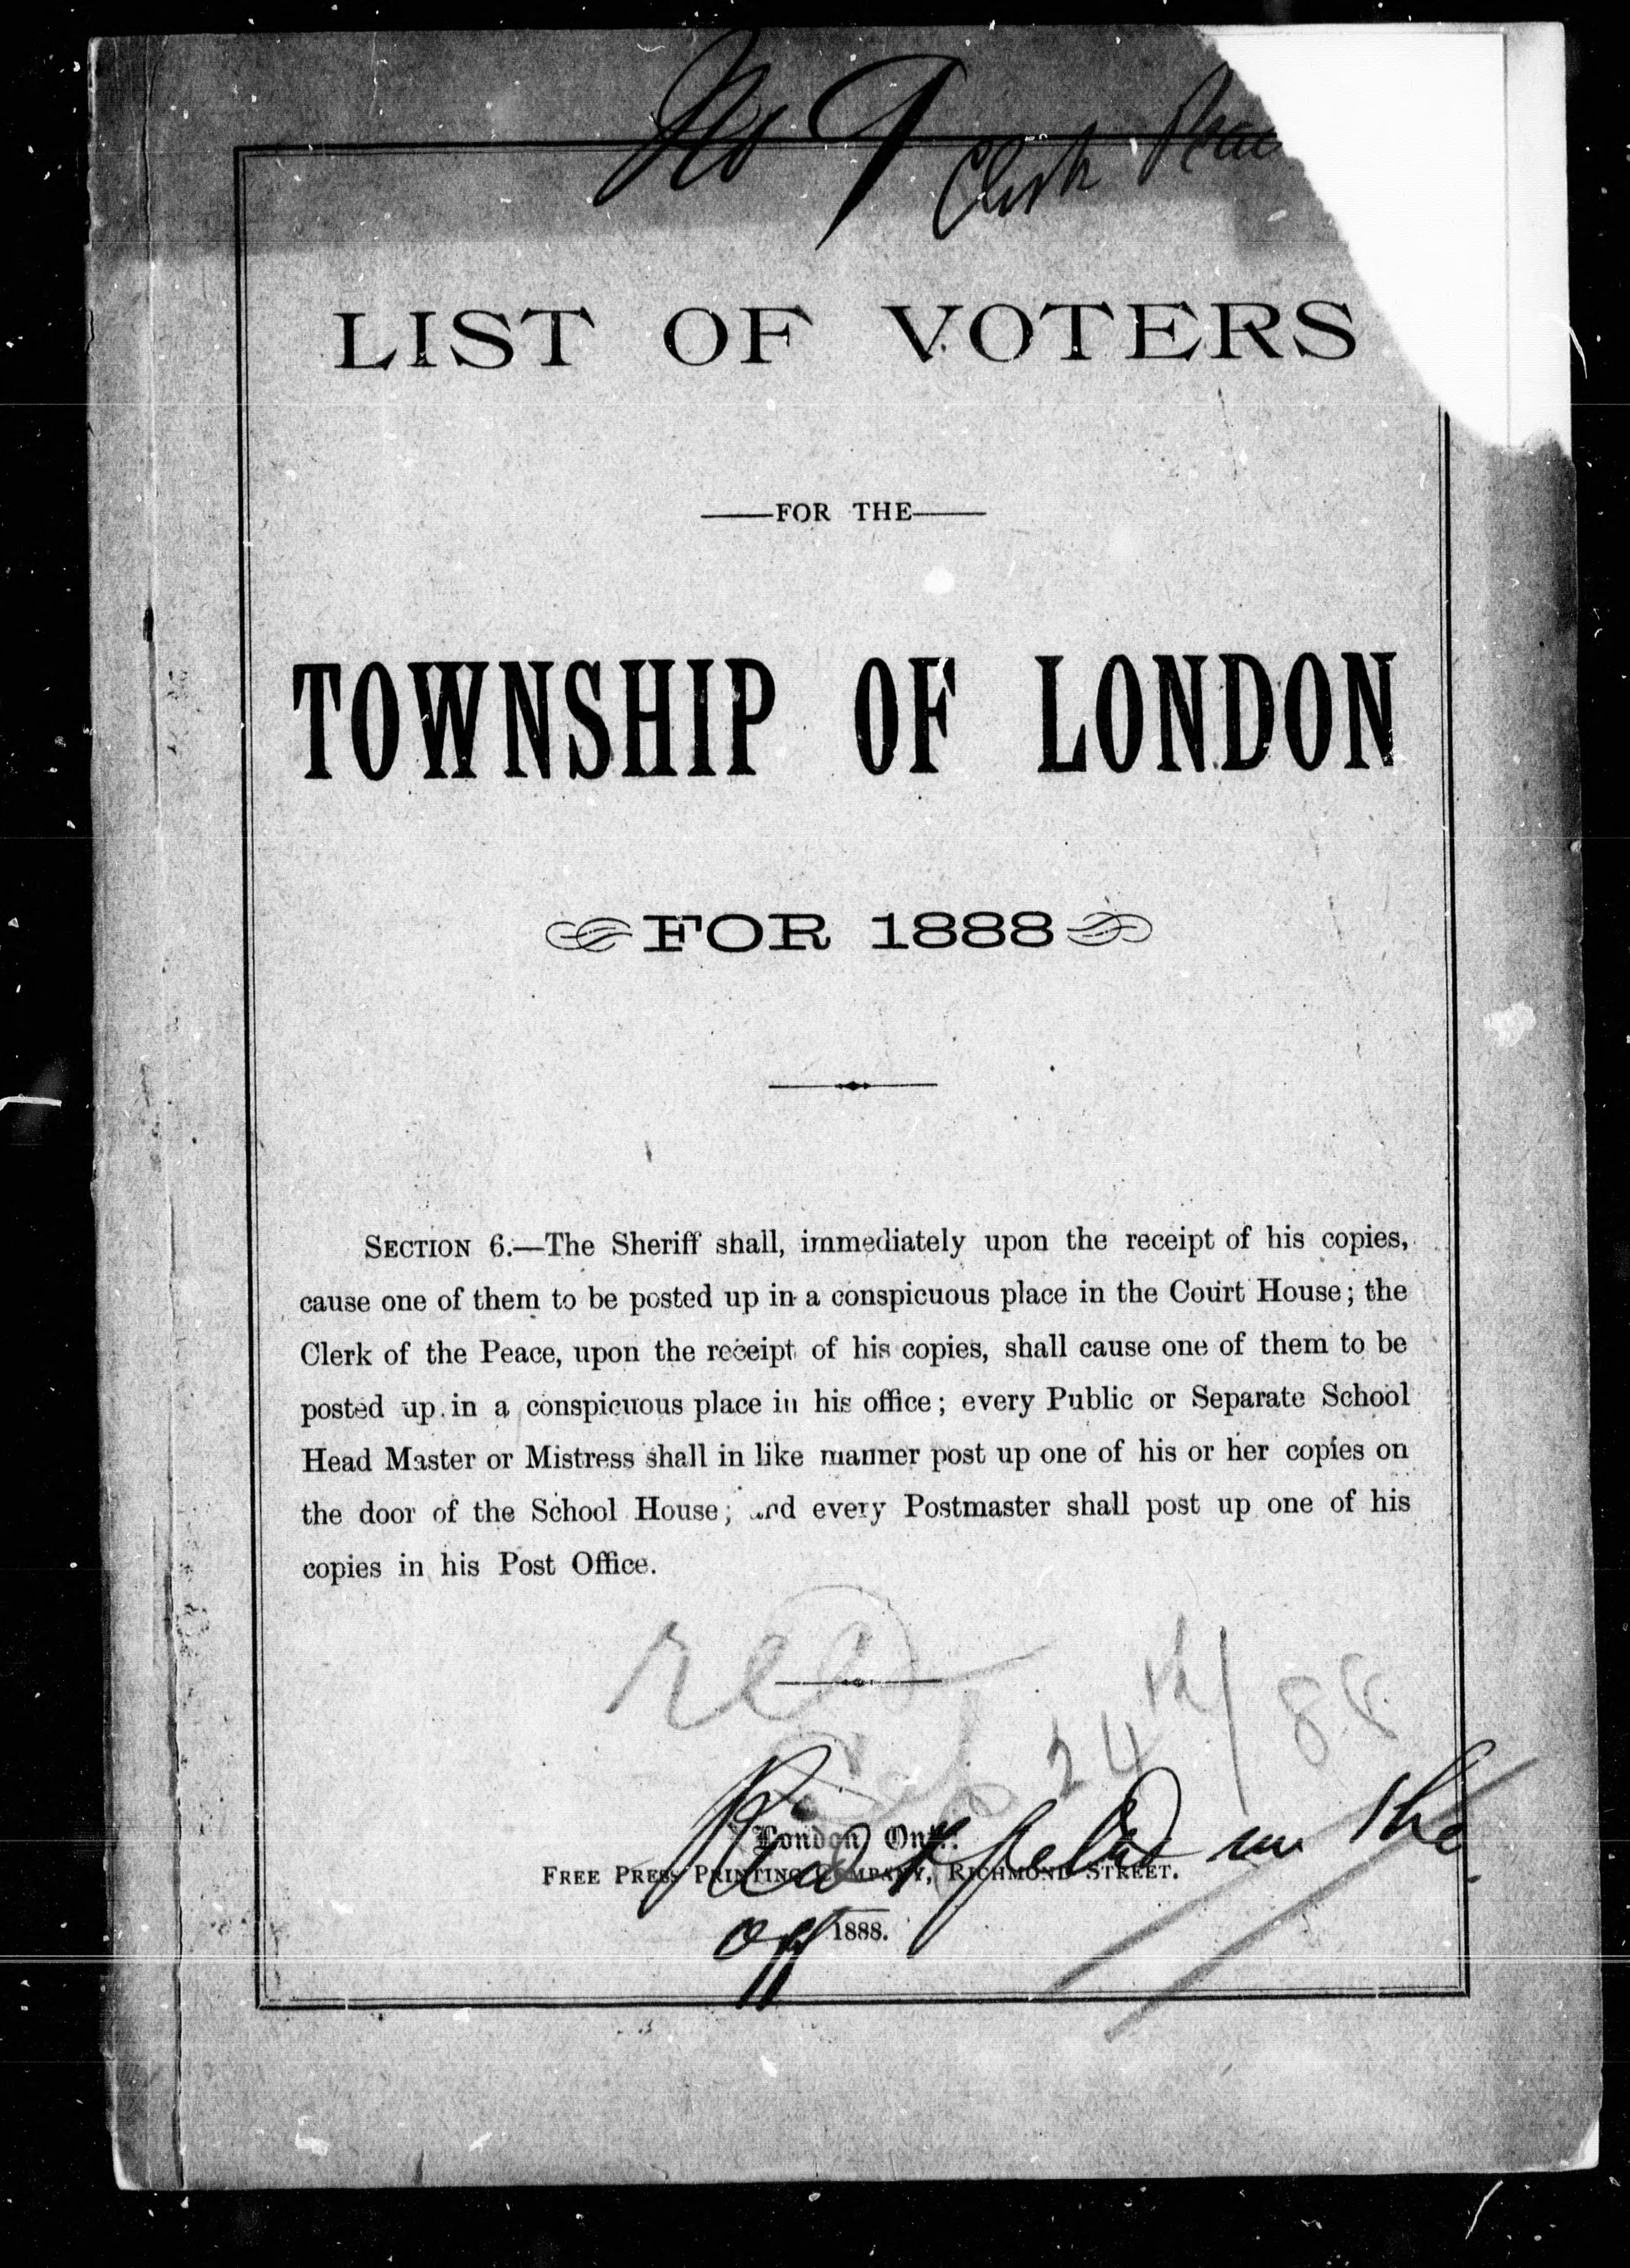 No 9 Clerk Peac
LIST OF VOTERS
—FOR THE—
TOWNSHIP OF LONDON
FOR 1888
SECTION 6.—The Sheriff shall, immediately upon the receipt of his copies,
cause one of them to be posted up in a conspicuous place in the Court House; the
Clerk of the Peace, upon the receipt of his copies, shall cause one of them to be
posted up in a conspicuous place in his office; every Public or Separate School
Head Master or Mistress shall in like manner post up one of his or her copies on
the door of the School House; and every Postmaster shall post up one of his
copies in his Post Office.
rec
Sep 24th/88
London, Ont.:
FREE PRESS PRINTING COMPANY, RICHMOND STREET.
1888.
in the
off